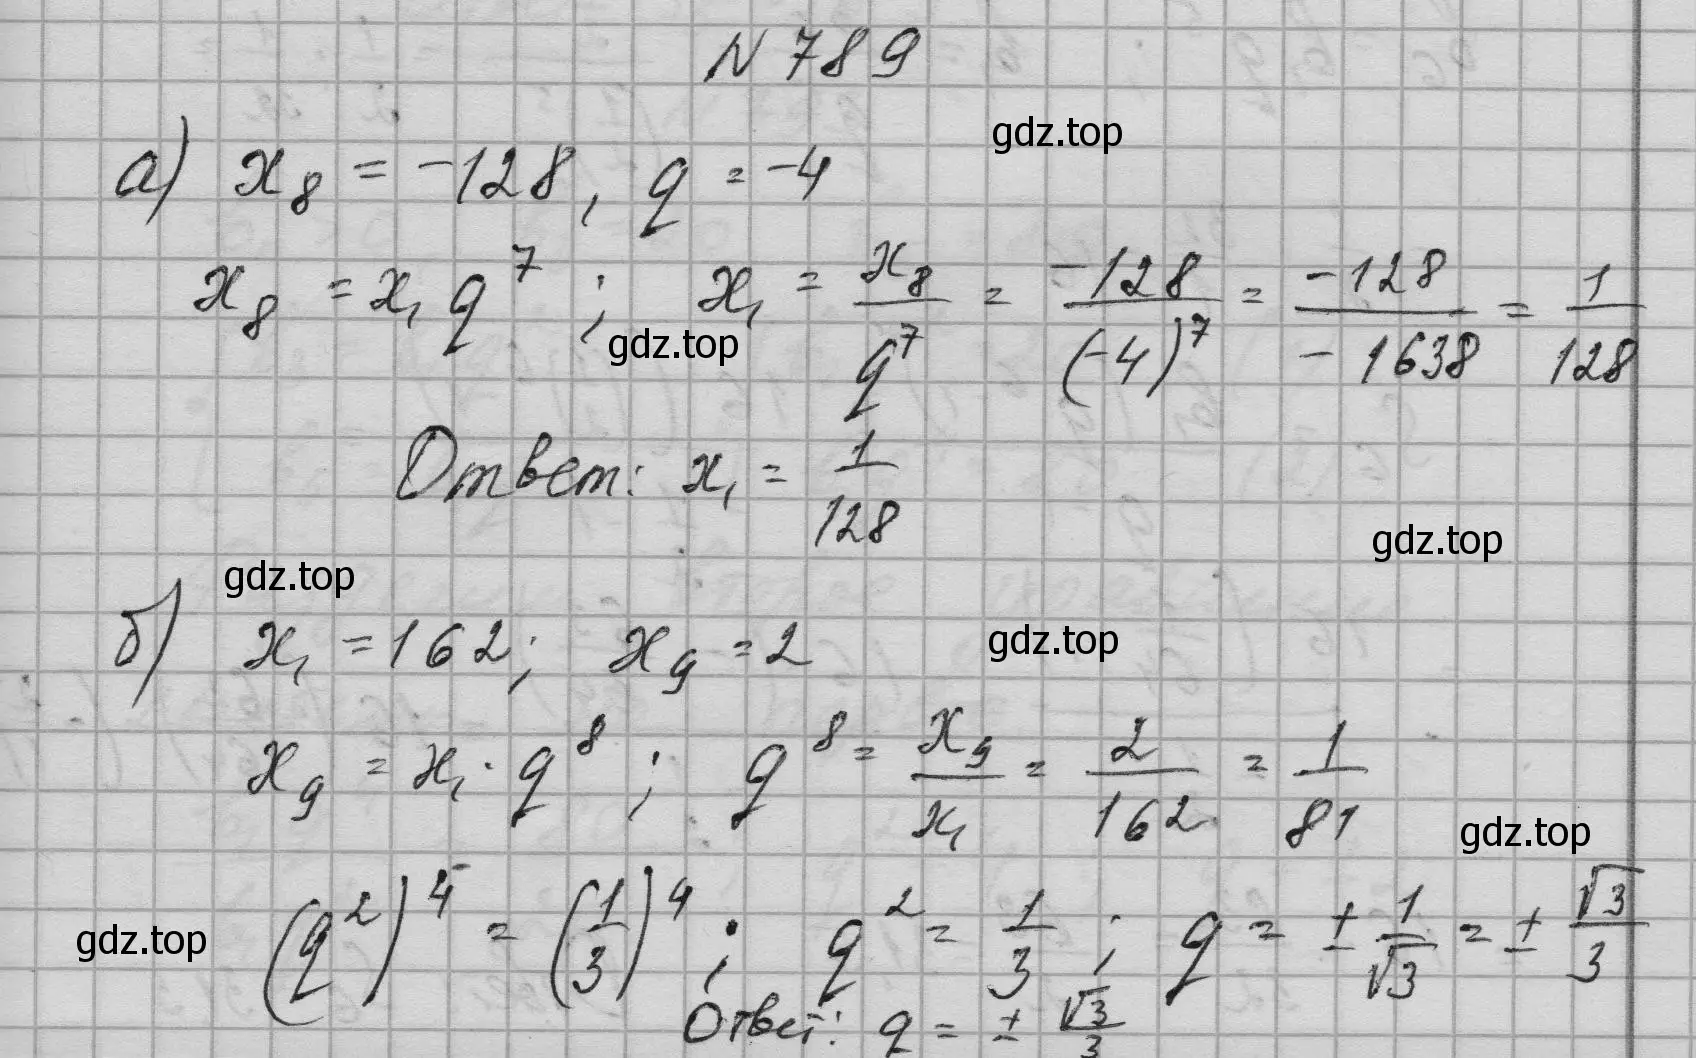 N 789
gdz.top
а) x₈ = -128, q = -4
x₈ = x₁ q⁷ ; x₁ = x₈/q⁷ = -128/(-4)⁷ = -128/-1638 = 1/128
gdz.top
Ответ: x₁ = 1/128
gdz.top
gdz.top
б) x₁ = 162; x₉ = 2
gdz.top
x₉ = x₁ · q⁸ ; q⁸ = x₉/x₁ = 2/162 = 1/81
gdz.top
(q²)⁴ = (1/3)⁴ ; q² = 1/3 ; q = ± 1/√3 = ± √3/3
gdz.top
Ответ: q = ± √3/3